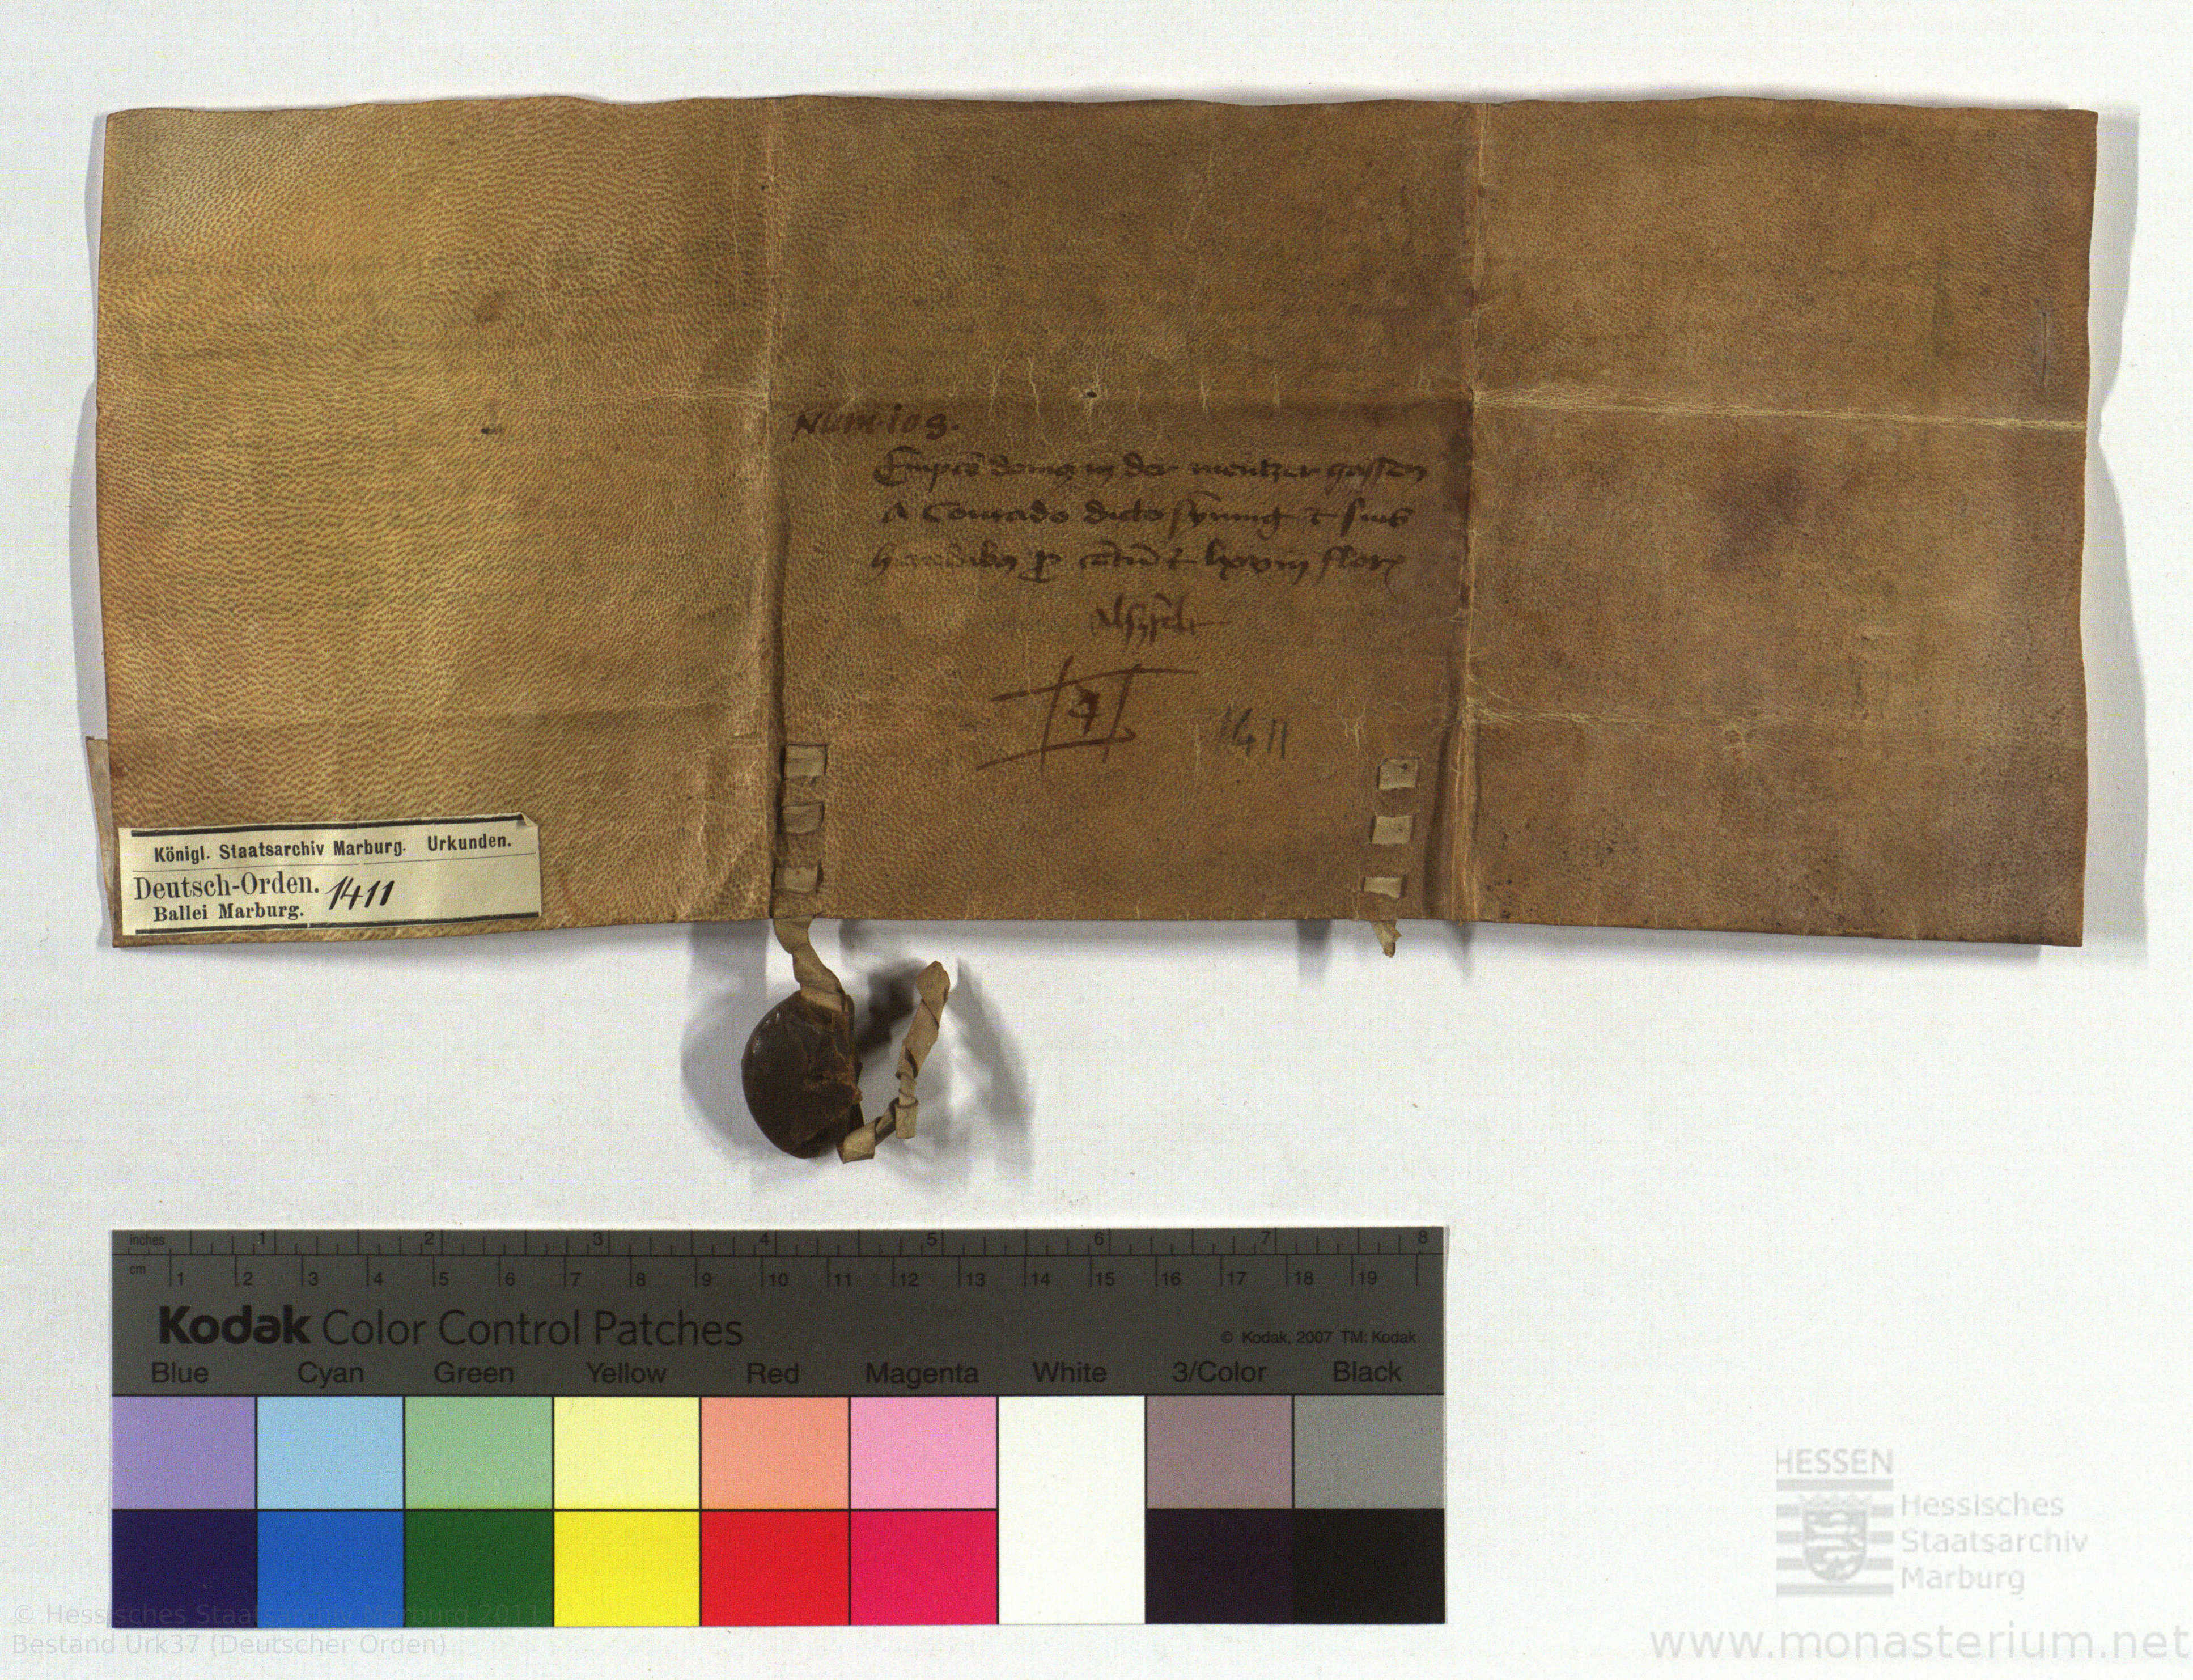 Num. 108.
Empcō domꝯ in der mentzer gassen
A Conrado dicto & suis
heredibꝯ ꝓ cētū & lxxviij florꝝ
Alsfelt
4
1411
Königl. Staatsarchiv Marburg. Urkunden.
Deutsch-Orden. 1411
Ballei Marburg.
inches 1 2 3 4 5 6 7 8
cm 1 2 3 4 5 6 7 8 9 10 11 12 13 14 15 16 17 18 19
Kodak Color Control Patches
© Kodak, 2007 TM: Kodak
Blue Cyan Green Yellow Red Magenta White 3/Color Black
HESSEN
Hessisches
Staatsarchiv
Marburg
© Hessisches Staatsarchiv Marburg 2011
Bestand Urk37 (Deutscher Orden)
www.monasterium.net